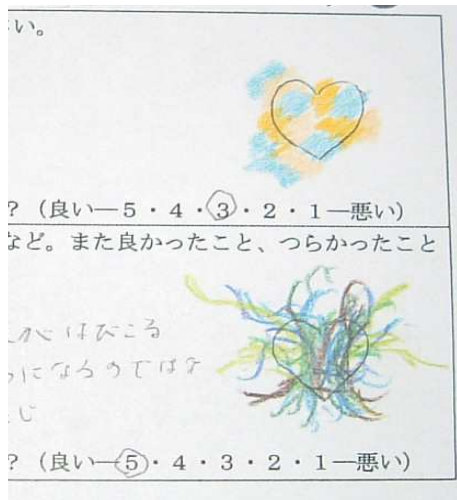 い。
? (良い—5・4・3・2・1—悪い)
など。また良かったこと、つらかったこと
はびこる
になるのではな
じ
? (良い—5・4・3・2・1—悪い)